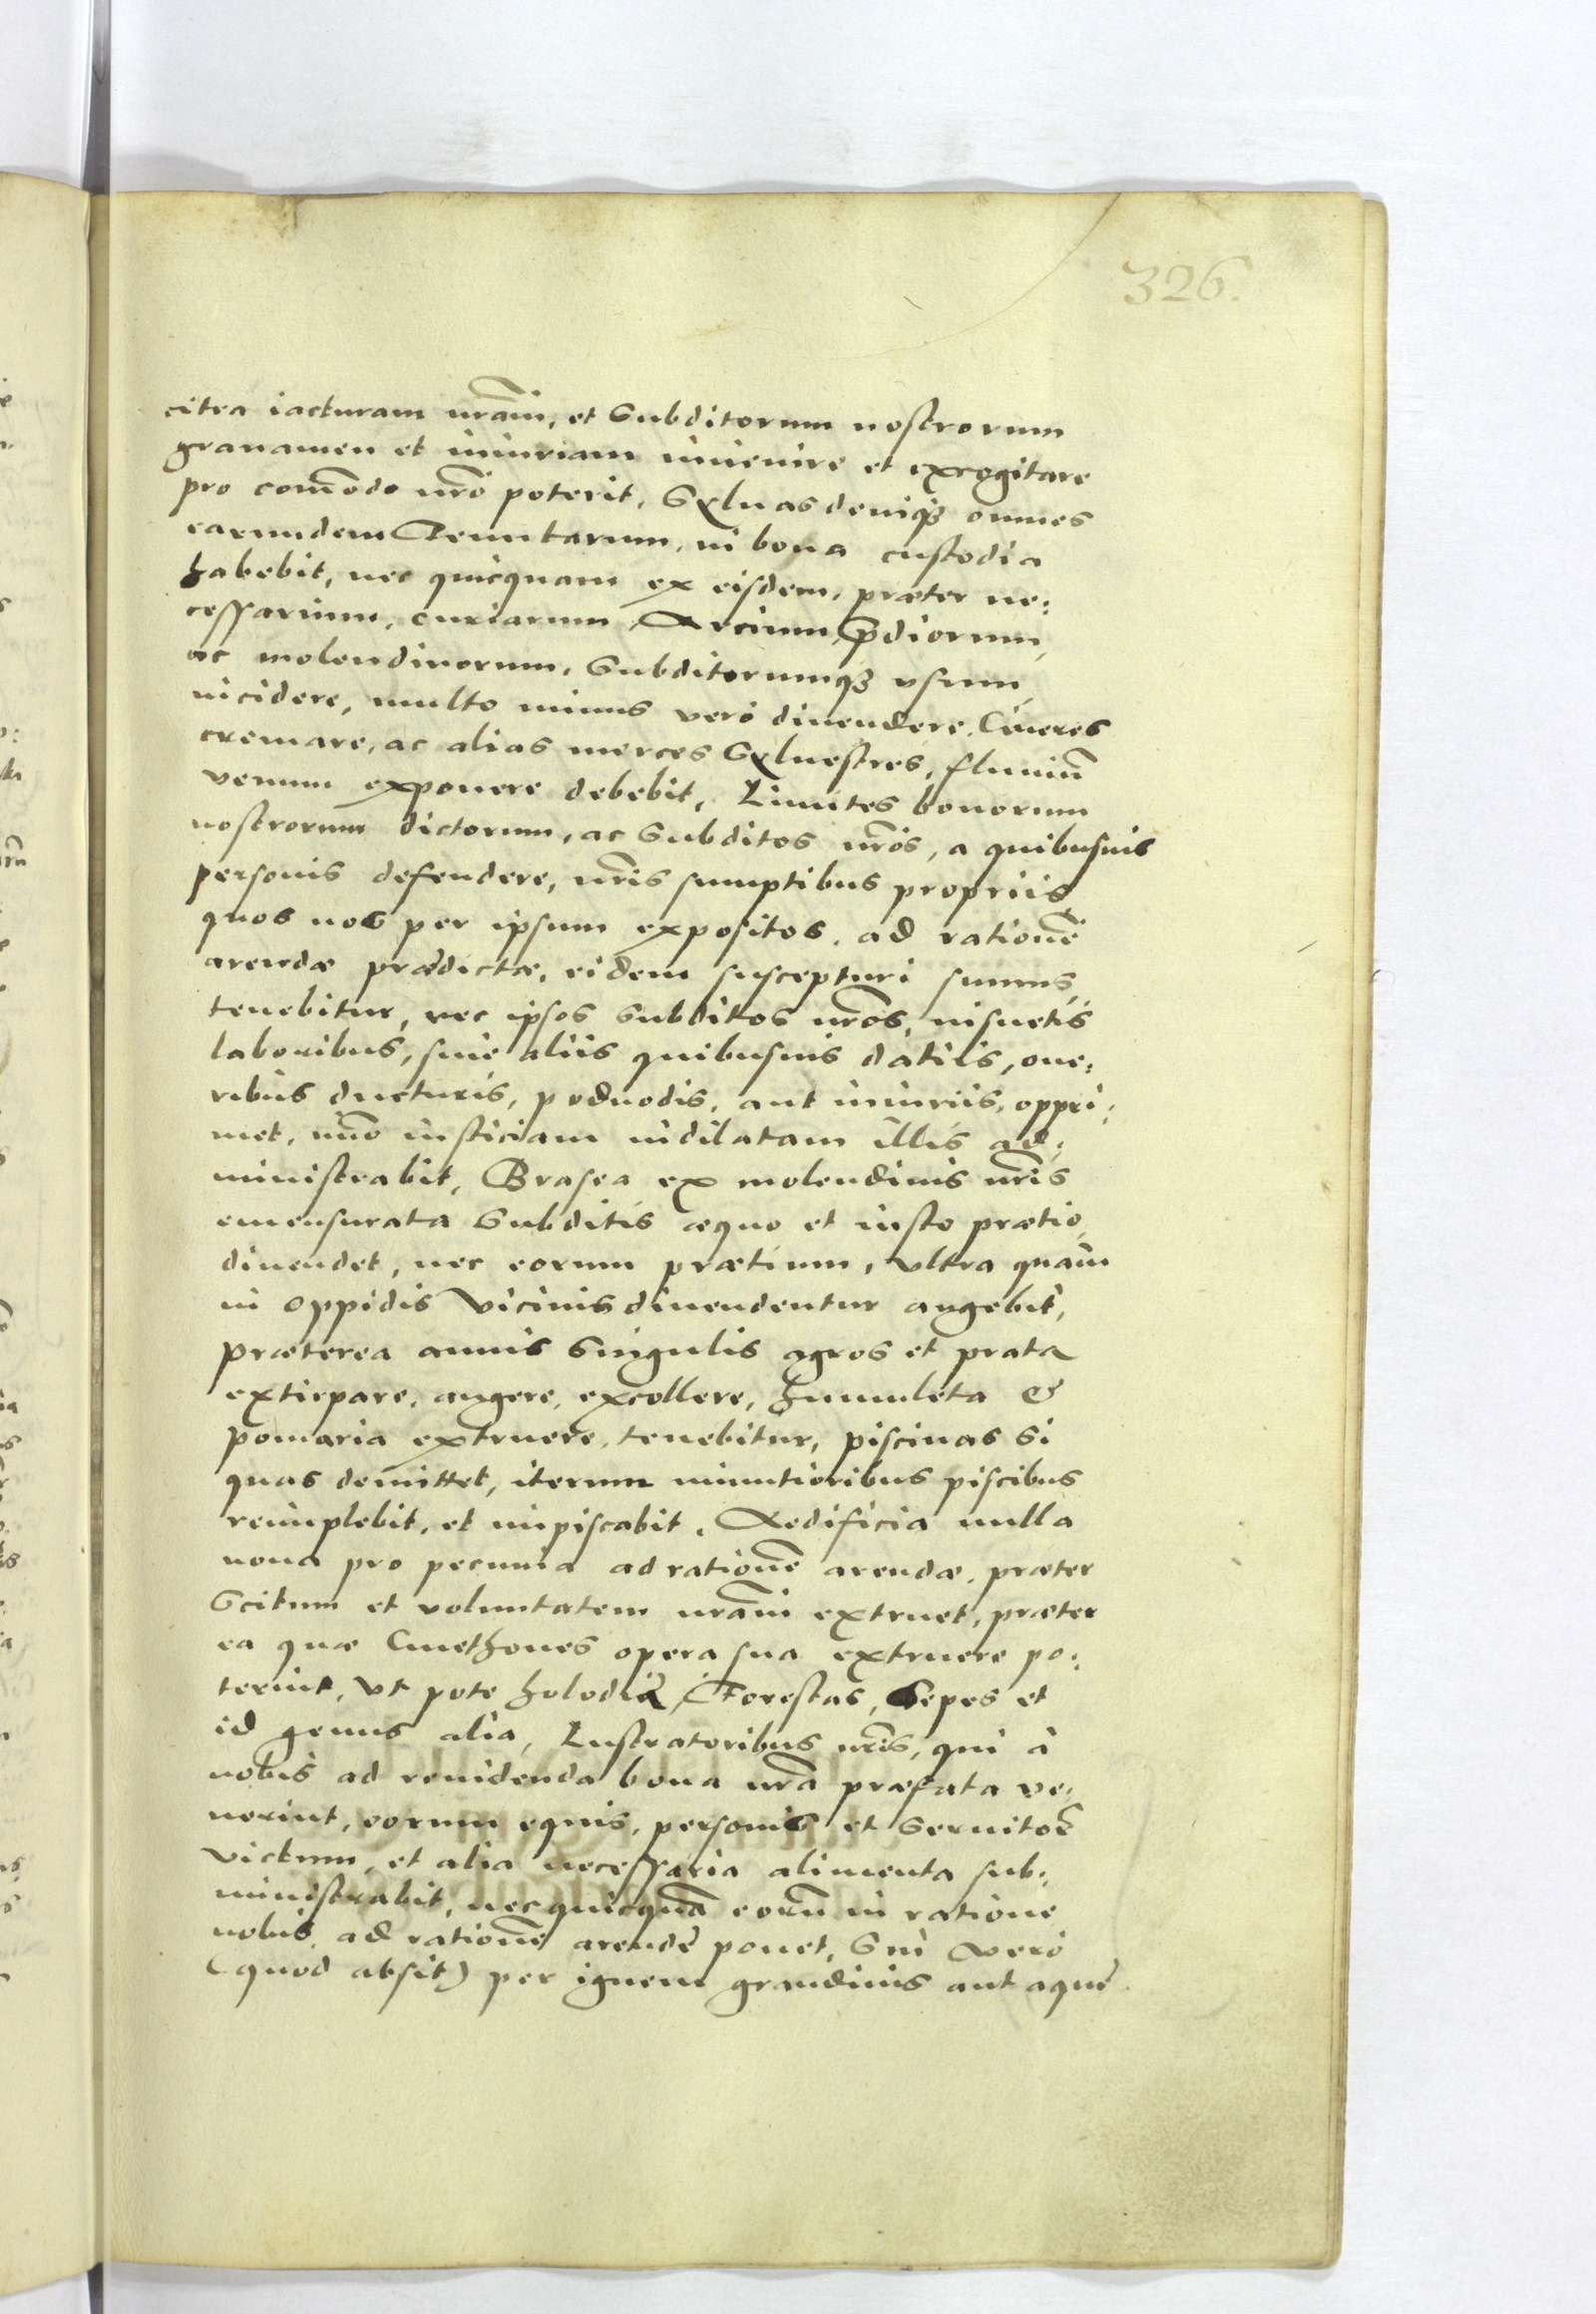 326.
citra iacturam nram, et Subditorum nostrorum
grauamen et iniuriam inuenire et excogitare
pro comodo nro poterit, Syluas deniq3 omnes
earundem Tenutarum, in bona custodia
habebit, nec quicquam ex eisdem, præter ne:
cessarium, curiarum, Arcium, prdiorum,
ac molendinorum, Subditorumq3 vsum,
incidere, multo minus verò diuendere, Cineres
cremare, ac alias merces Syluestres, fluuiũ
venum exponere debebit, Limites bonorum
nostrorum dictorum, ac Subditos nros, a quibusuis
personis defendere, nris sumptibus propriis,
quos nos per ipsum expositos, ad rationẽ
arendæ prædictæ, eidem suscepturi sumus,
tenebitur, nec ipsos Subditos nros, insuetis
laboribus, siue aliis quibusuis datiis, one:
ribus ducturis, poduodis, aut iniuriis, oppri:
met, imo iusticiam indilatam illis ad:
ministrabit, Brasea ex molendinis nris
emensurata Subditis æquo et iusto prætio,
diuendet, nec eorum prætium, vltra quàm
in oppidis vicinis diuendentur augebit,
præterea annis Singulis agros et prata
extirpare, augere, excollere, humuleta &
pomaria extruere, tenebitur, piscinas Si
quas demittet, iterum minutioribus piscibus
reimplebit, et impiscabit, Aedificia nulla
noua pro pecunia ad rationẽ arendæ, præter
Scitum et voluntatem nram extruet, præter
ea quæ Cmethones opera sua extruere po:
terint, vt pote holodia, Forestas, Sepes et
id genus alia, Lustratoribus nris, qui à
nobis ad reuidenda bona nra præfata ve:
nerint, eorum equis, personis et Seruitorẽ
victum, et alia necessaria alimenta sub:
ministrabit, nec quicquã eorũ in ratione
nobis, ad rationẽ arendę ponet, Sin verò
(quod absit) per ignem grandinis aut aquę